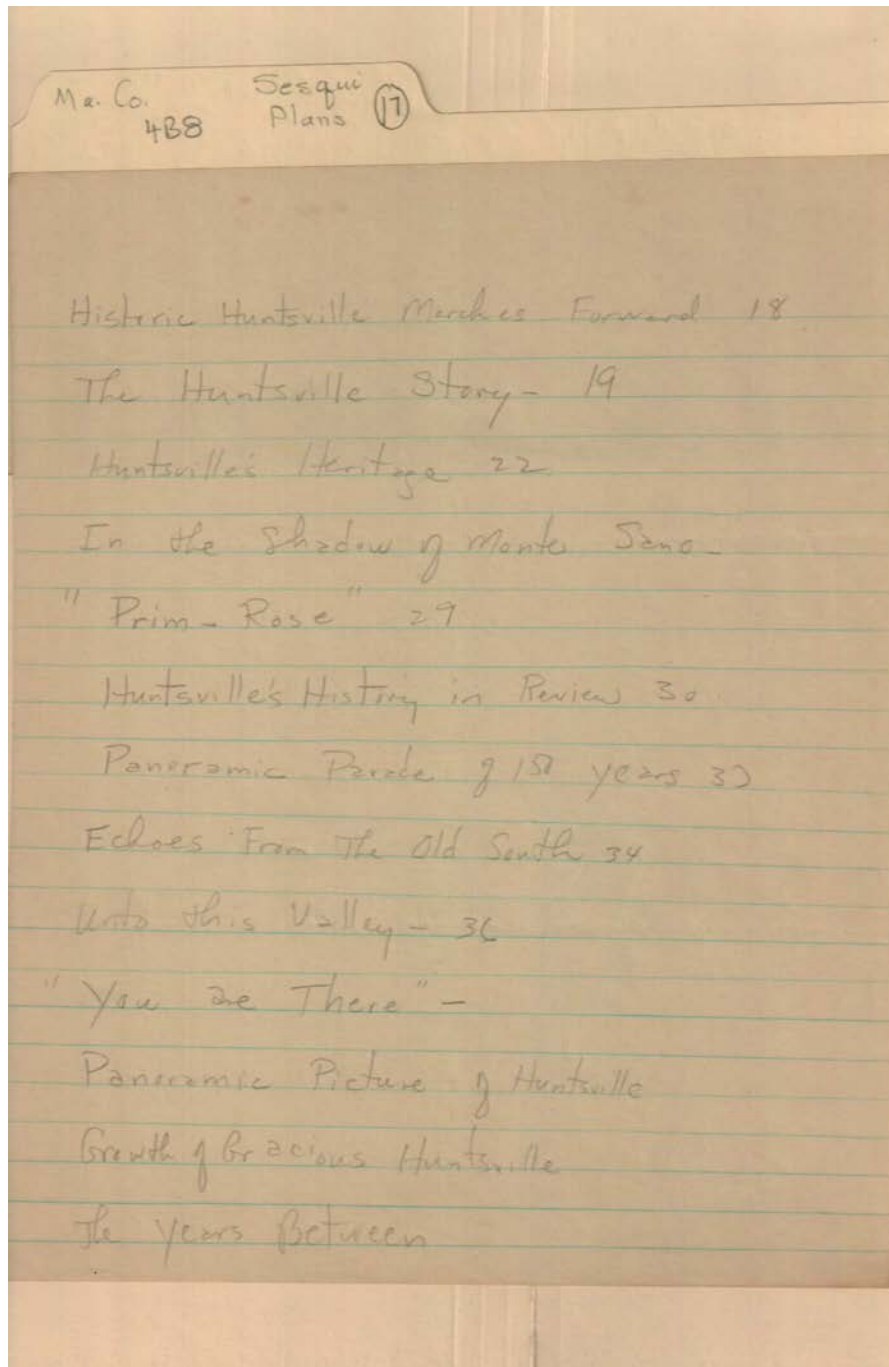 Ma. Co. Sesqui
4B8 Plans 17
Historic Huntsville Marches Forward 18
The Huntsville Story - 19
Huntsville's Heritage 22
In the Shadow of Monte Sano -
"Prim - Rose" 29
Huntsville's History in Review 30
Panoramic Parade of 150 years
Echoes From The Old South 34
Unto this Valley -
"You are There" -
Panoramic Picture of Huntsville
Growth of Gracious Huntsville
The Years Between